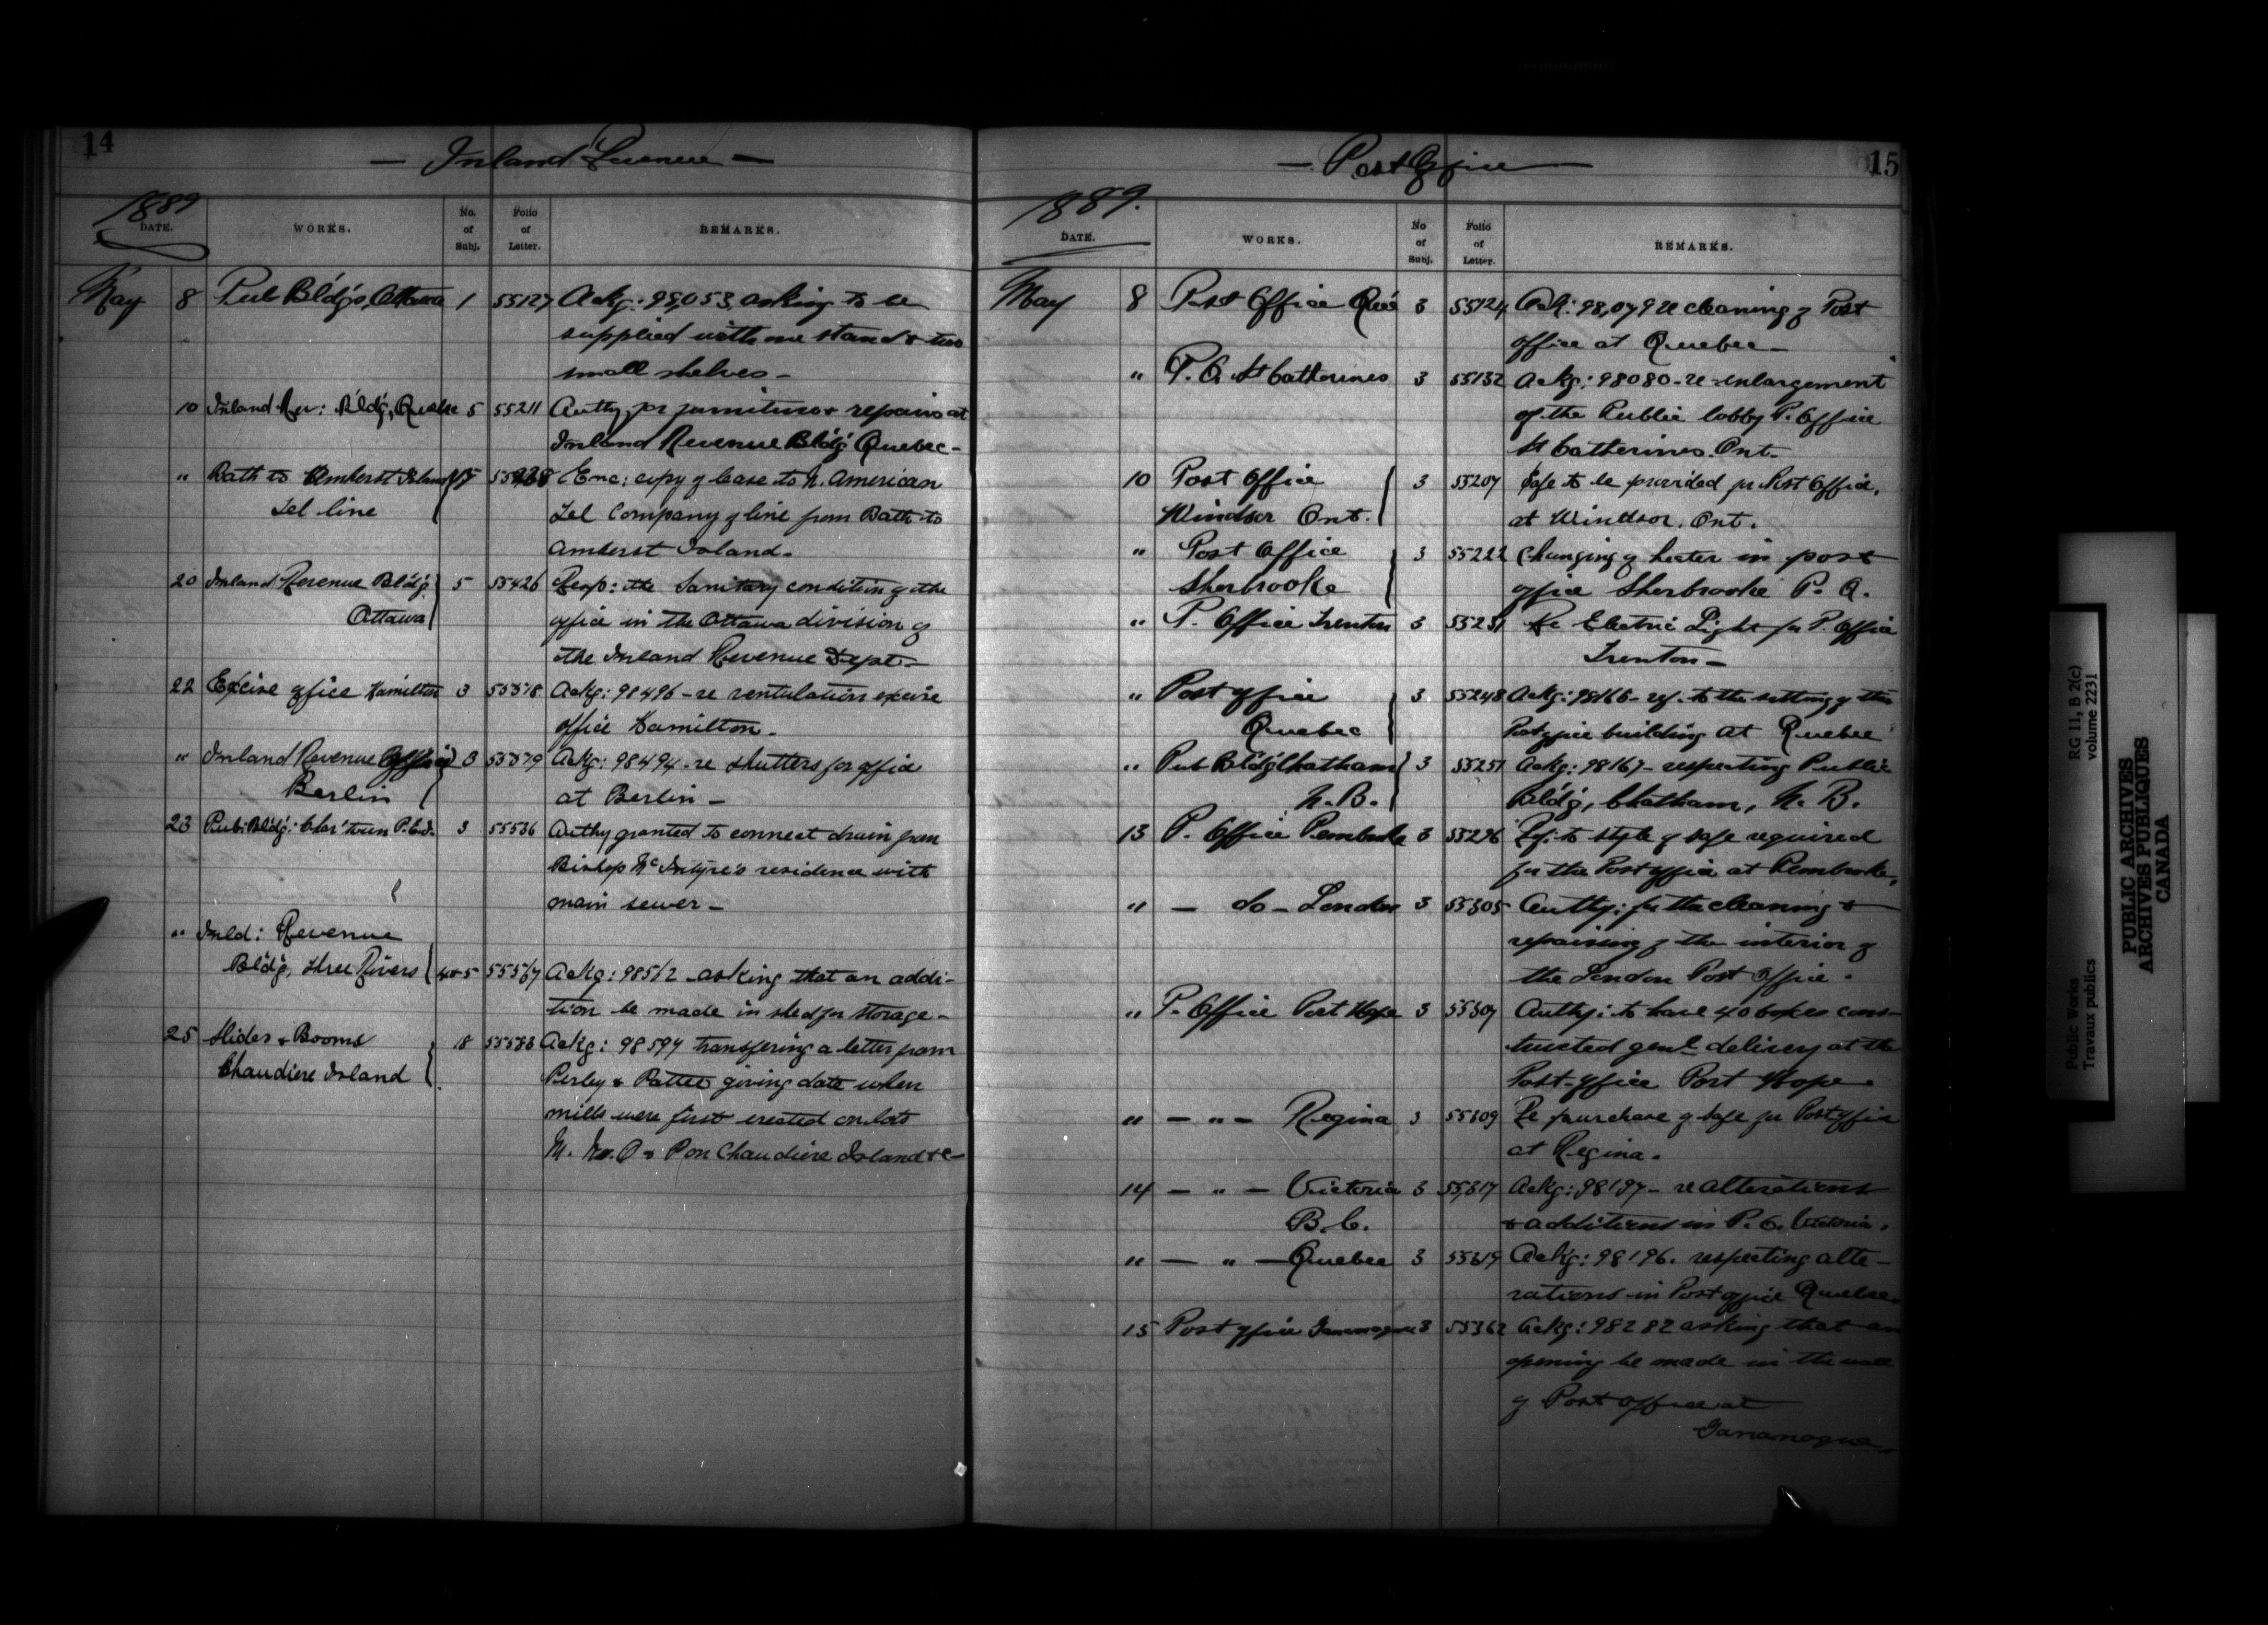 14
— Inland Revenue —
1889
DATE. WORKS. No. of Subj. Folio of Letter. REMARKS.
May 8 Pub Bld'gs, Ottawa 1 55127 Ackg: 98,053, asking to be
supplied with one stand & two
small shelves —
10 Inland Rev: Bld'g, Quebec 5 55211 Authy for furniture & repairs at
Inland Revenue Bld'g Quebec —
" Bath to Amherst Island Enc: copy of lease to N. American
Tel line Tel Company of line from Bath to
Amherst Island.
20 Inland Revenue Bld'g 5 55426 Resp: the Sanitary condition of the
Ottawa office in the Ottawa division of
the Inland Revenue Dept —
22 Excise office Hamilton 3 55518 Ackg: 98496 - re ventulation excise
office Hamilton.
" Inland Revenue Office 3 Ackg: 98494 - re shutters for office
Berlin at Berlin —
23 Pub: Bld'g: Char'town P.E.I. 3 55536 Authy granted to connect drain from
Bishop McIntyre's residence with
main sewer —
" Inld: Revenue
Bld'g, Three Rivers 4 & 5 55567 Ackg: 98512 asking that an addi-
tion be made in shed for storage —
25 Slides & Booms 18 55583 Ackg: 98594 transfering a letter from
Chaudiere Island Perley & Pattee giving date when
mills were first erected on lots
M. N. O & P on Chaudiere Island &c —
15
— Post Office —
1889.
DATE. WORKS. No of Subj. Folio of Letter. REMARKS.
May 8 Post Office Que 3 55124 Ack: 98,079 re cleaning of Post
office at Quebec —
" P. O. St Catherines 3 55132 Ackg: 98080 - re enlargement
of the Public lobby P. Office
St Catherines. Ont.
10 Post Office 3 55207 Safe to be provided for Post Office,
Windsor Ont. at Windsor. Ont.
" Post Office 3 55222 Changing of heater in post
Sherbrooke office Sherbrooke P. Q.
" P. Office Trenton 3 55231 Re Electric Light for P. Office
Trenton —
" Post office 3 55248 Ackg: 98166 - ref. to the setting of the
Quebec Post office building at Quebec
" Pub Bld'g Chatham 3 55251 Ackg: 98167 - respecting Public
N. B. Bld'g, Chatham, N. B.
13 P. Office Pembroke 3 55296 Ref: to style of safe required
for the Post office at Pembroke,
" — do — London 3 55305 Authy: for the cleaning &
repairing of the interior of
the London Post Office.
" P. Office Port Hope 3 55307 Authy: to have 40 boxes cons-
tructed genl delivery at the
Post-office Port Hope.
" — " — Regina 3 55309 Re purchase of safe for Post office
at Regina.
14 — " — Victoria 3 55,317 Ackg: 98197 - re alterations
B. C. & additions in P. O. Victoria.
" — " — Quebec 3 55319 Ackg: 98196. respecting alte-
rations in Post office Quebec
15 Post office Gananoque 3 55362 Ackg: 98282 asking that an
opening be made in the wall
of Post office at
Gananoque.
RG 11, B 2(c)
volume 2231
Public Works
Travaux publics
PUBLIC ARCHIVES
ARCHIVES PUBLIQUES
CANADA